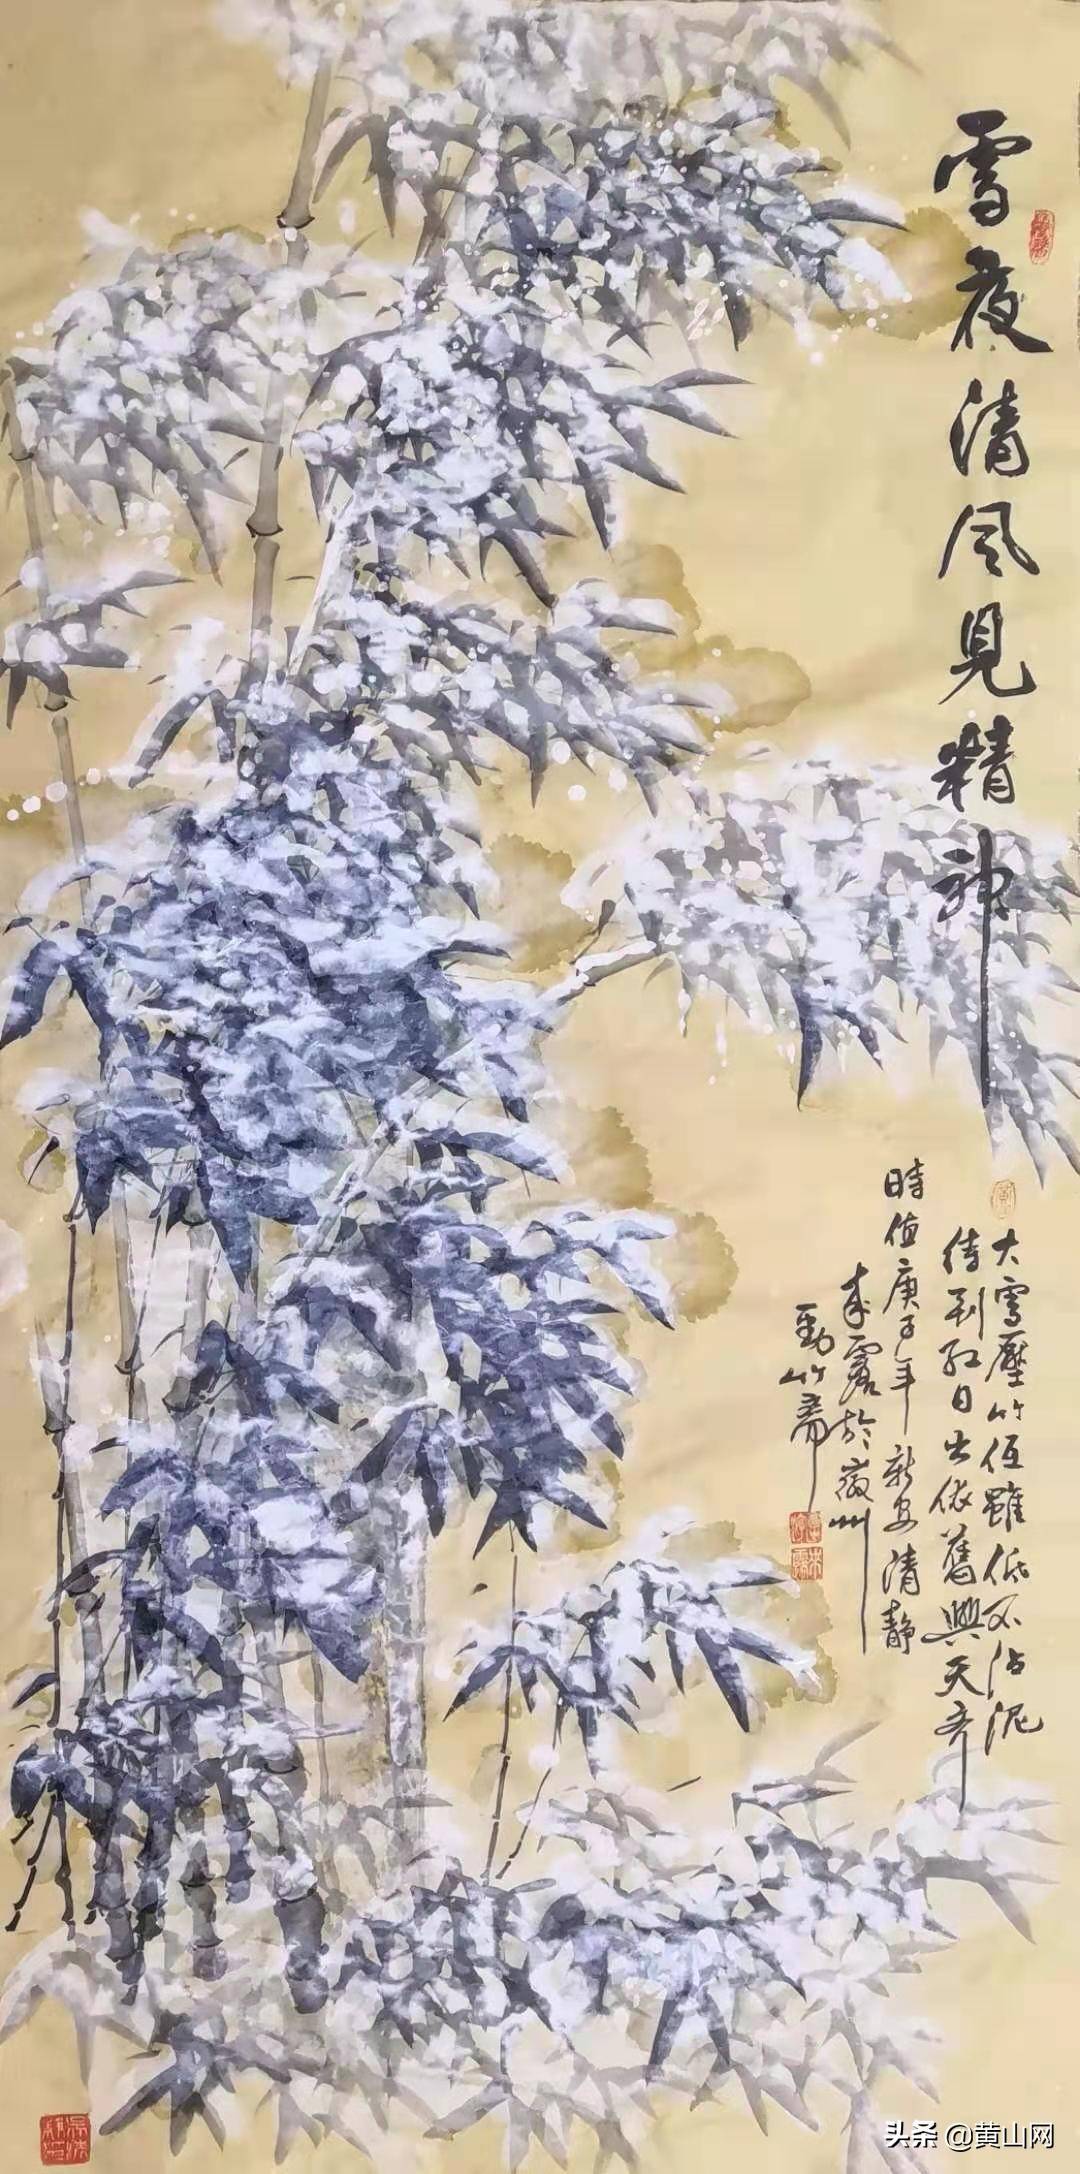 雪夜清风見精神
大雪壓竹低雖低不沾泥
待到红日出依舊與天齐
時值庚子年新安清静
来露於徽州
勁竹斋
头条 @黄山网